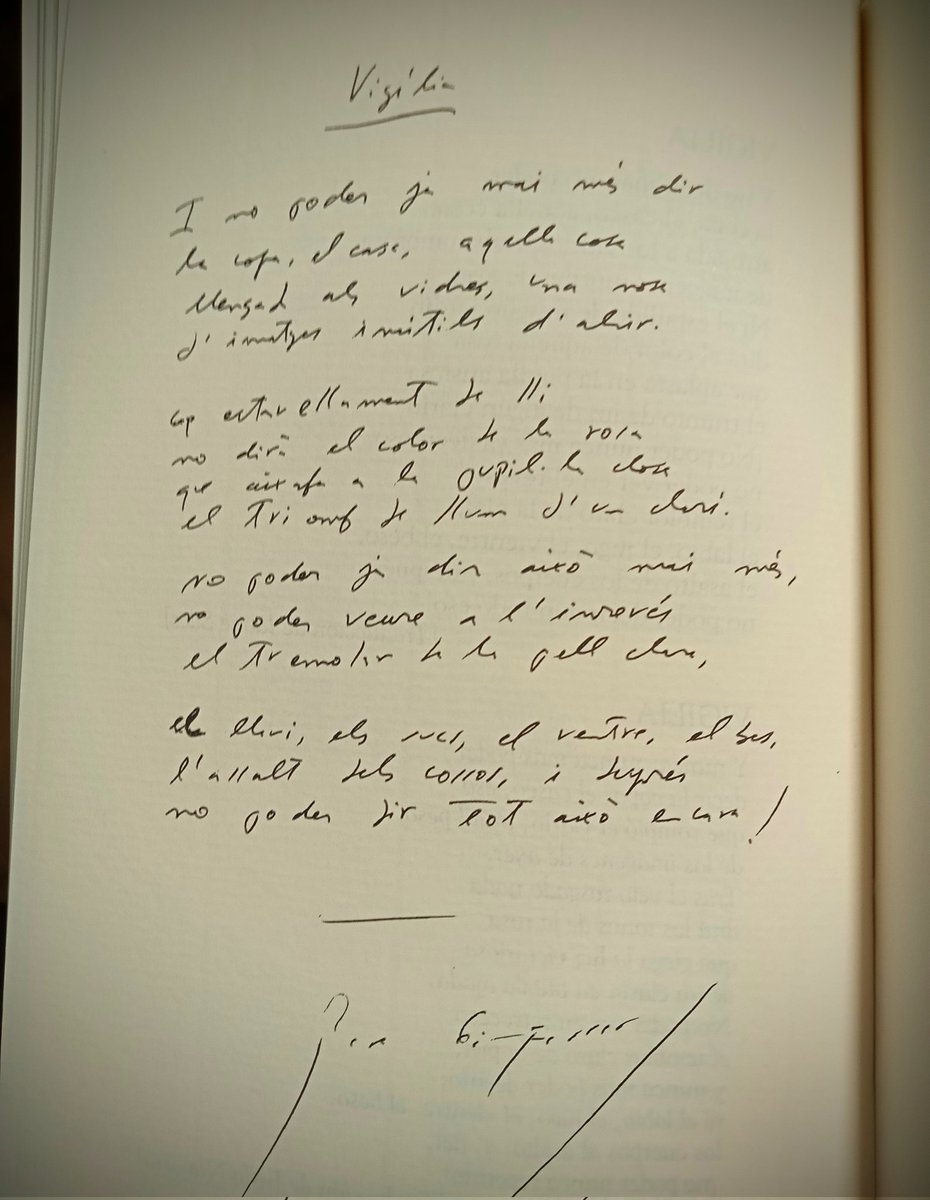 Vigília
I no poder ja mai més dir
la copa, el casc, aquella cosa
llençad als vidres, una nosa
d'imatges inútils d'ahir.
cap estavellament de lli
no dirà el color de la rosa
que aixafa a la pupil·la closa
el triomf de llum d'un clarí.
no poder ja dir això mai més,
no poder veure a l'inrevés
el tremolar de la pell clara,
el llavi, els sucs, el ventre, el bes,
l'assalt dels cossos, i després
no poder dir tot això encara!
Pere Gimferrer